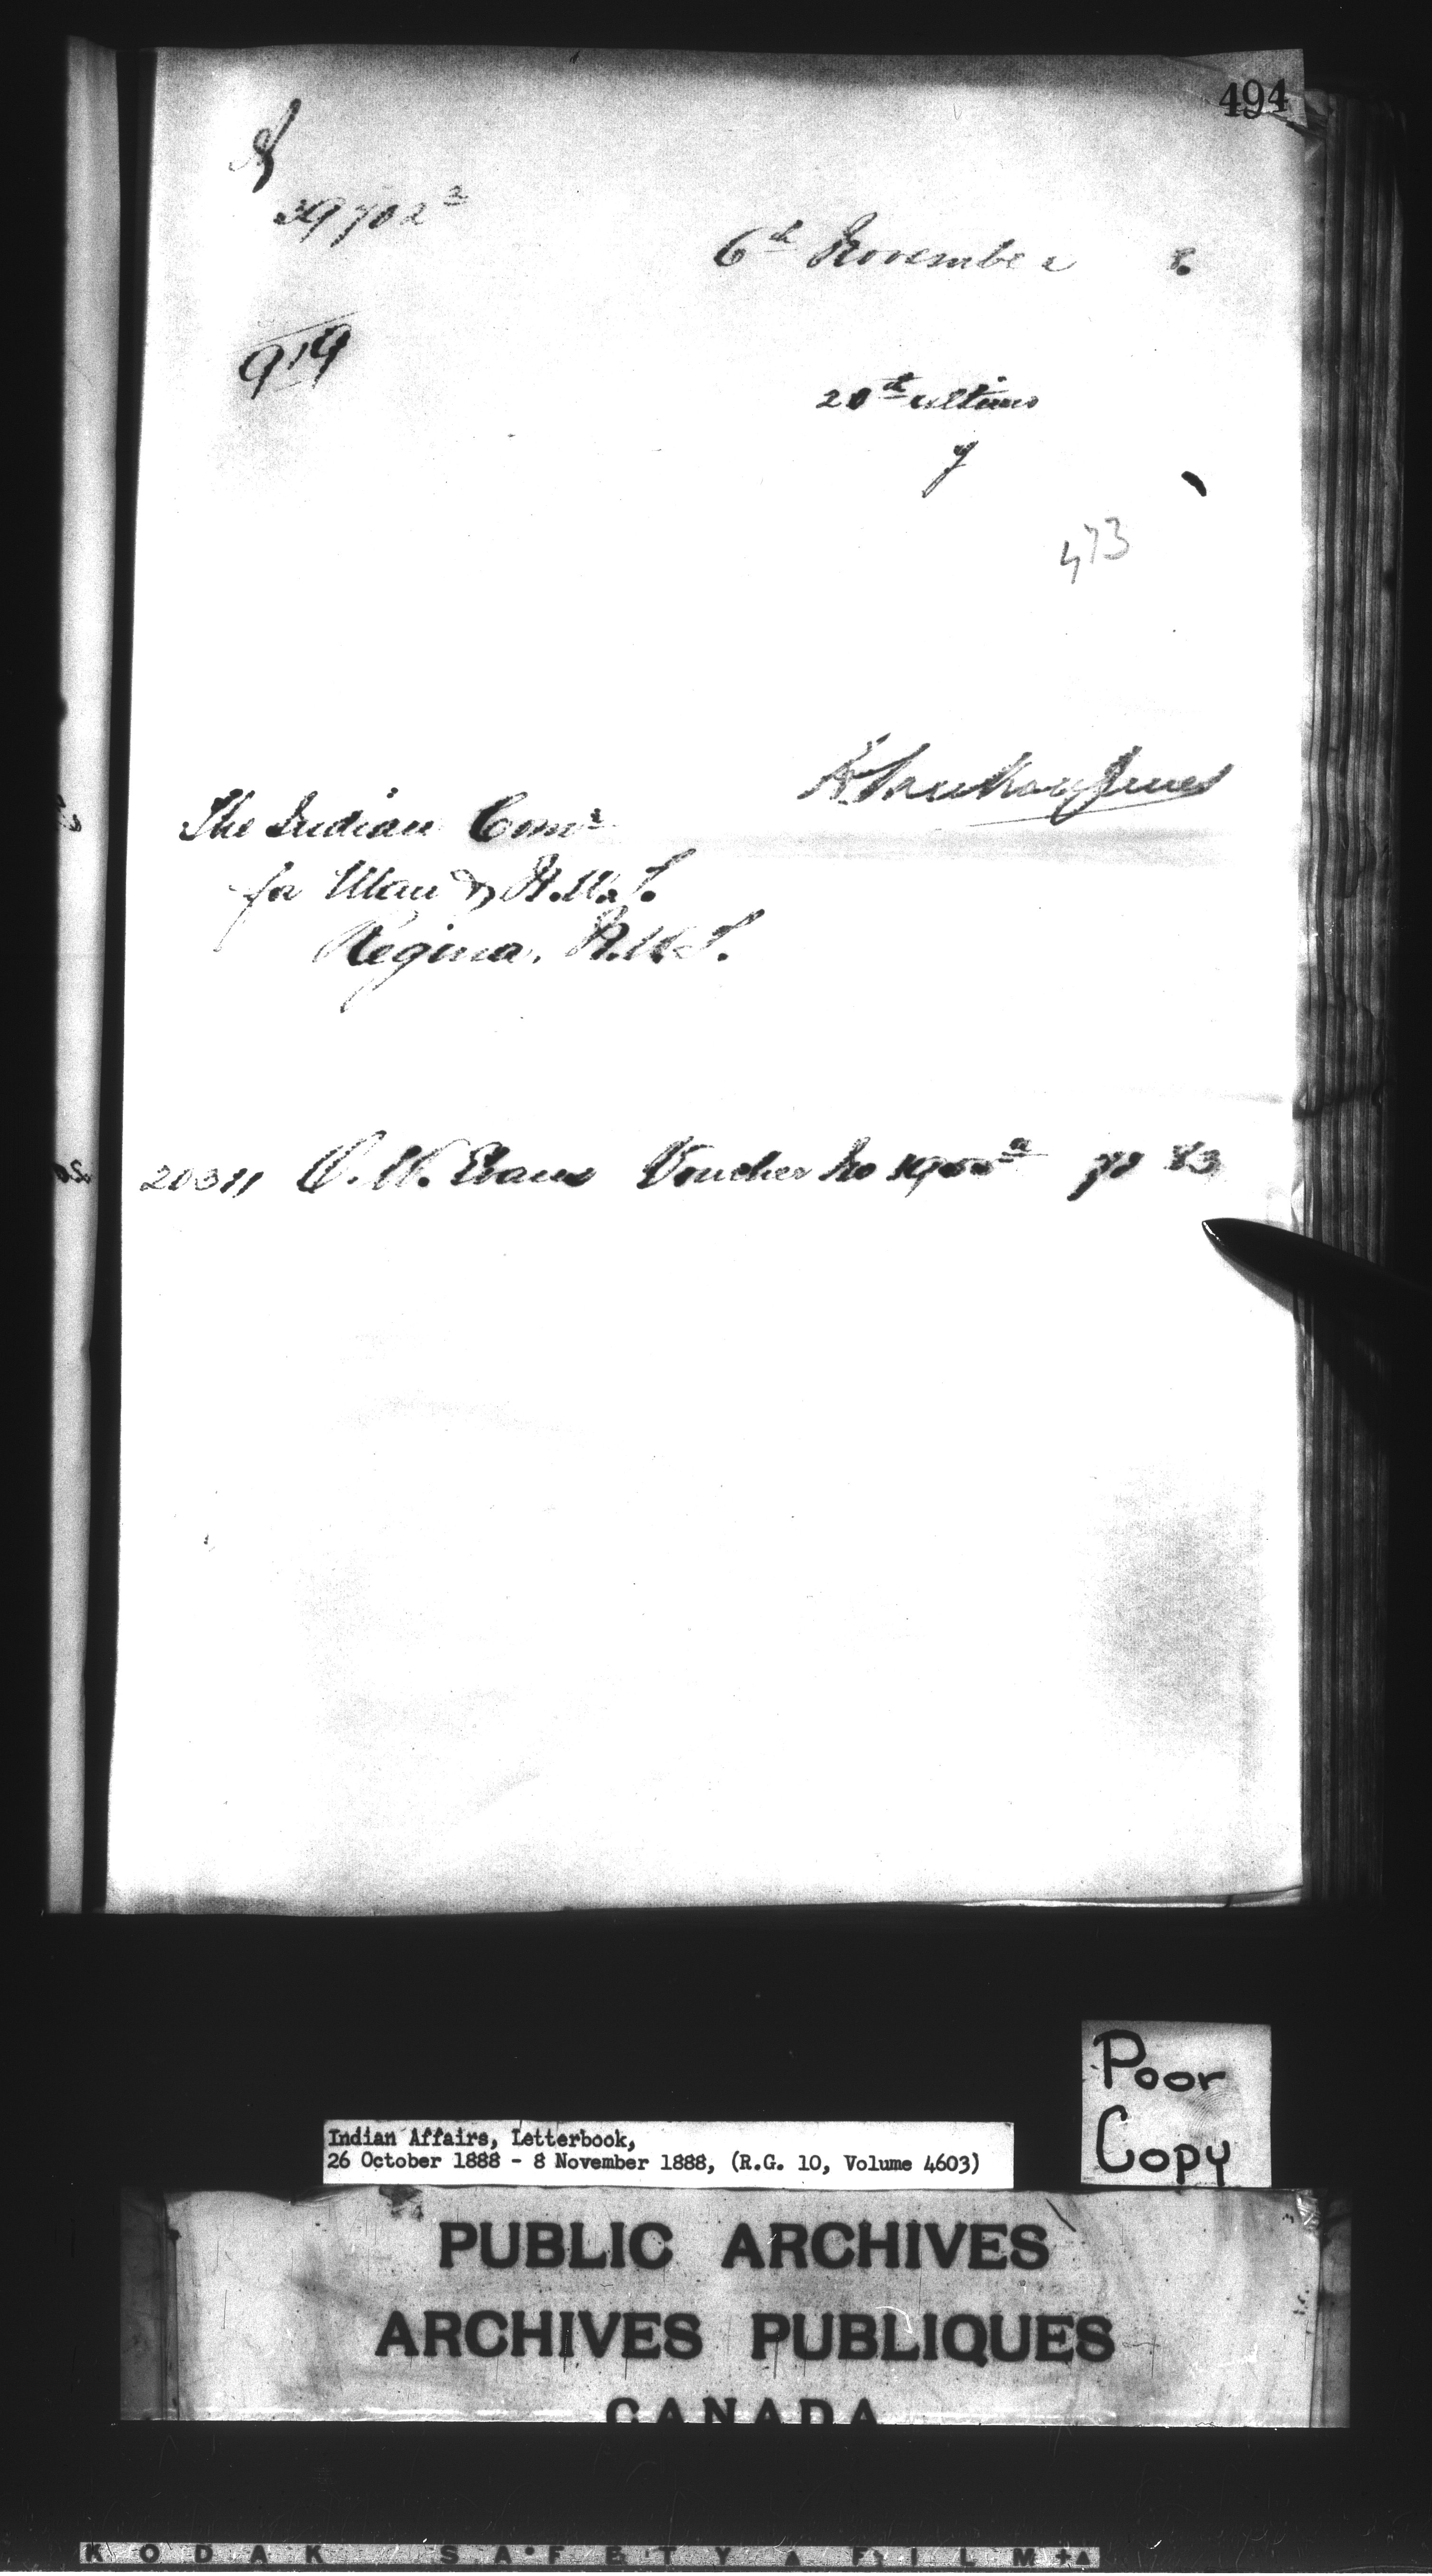 494
39702²
6th November 8.
919
20th ultimo
y
473
The Indian Comr
for Man & N.W.T.
Regina. N.W.T.
20311 Evans Voucher No 70 83
Poor
Copy
Indian Affairs, Letterbook,
26 October 1888 - 8 November 1888, (R.G. 10, Volume 4603)
PUBLIC ARCHIVES
ARCHIVES PUBLIQUES
CANADA
KODAK SAFETY FILM